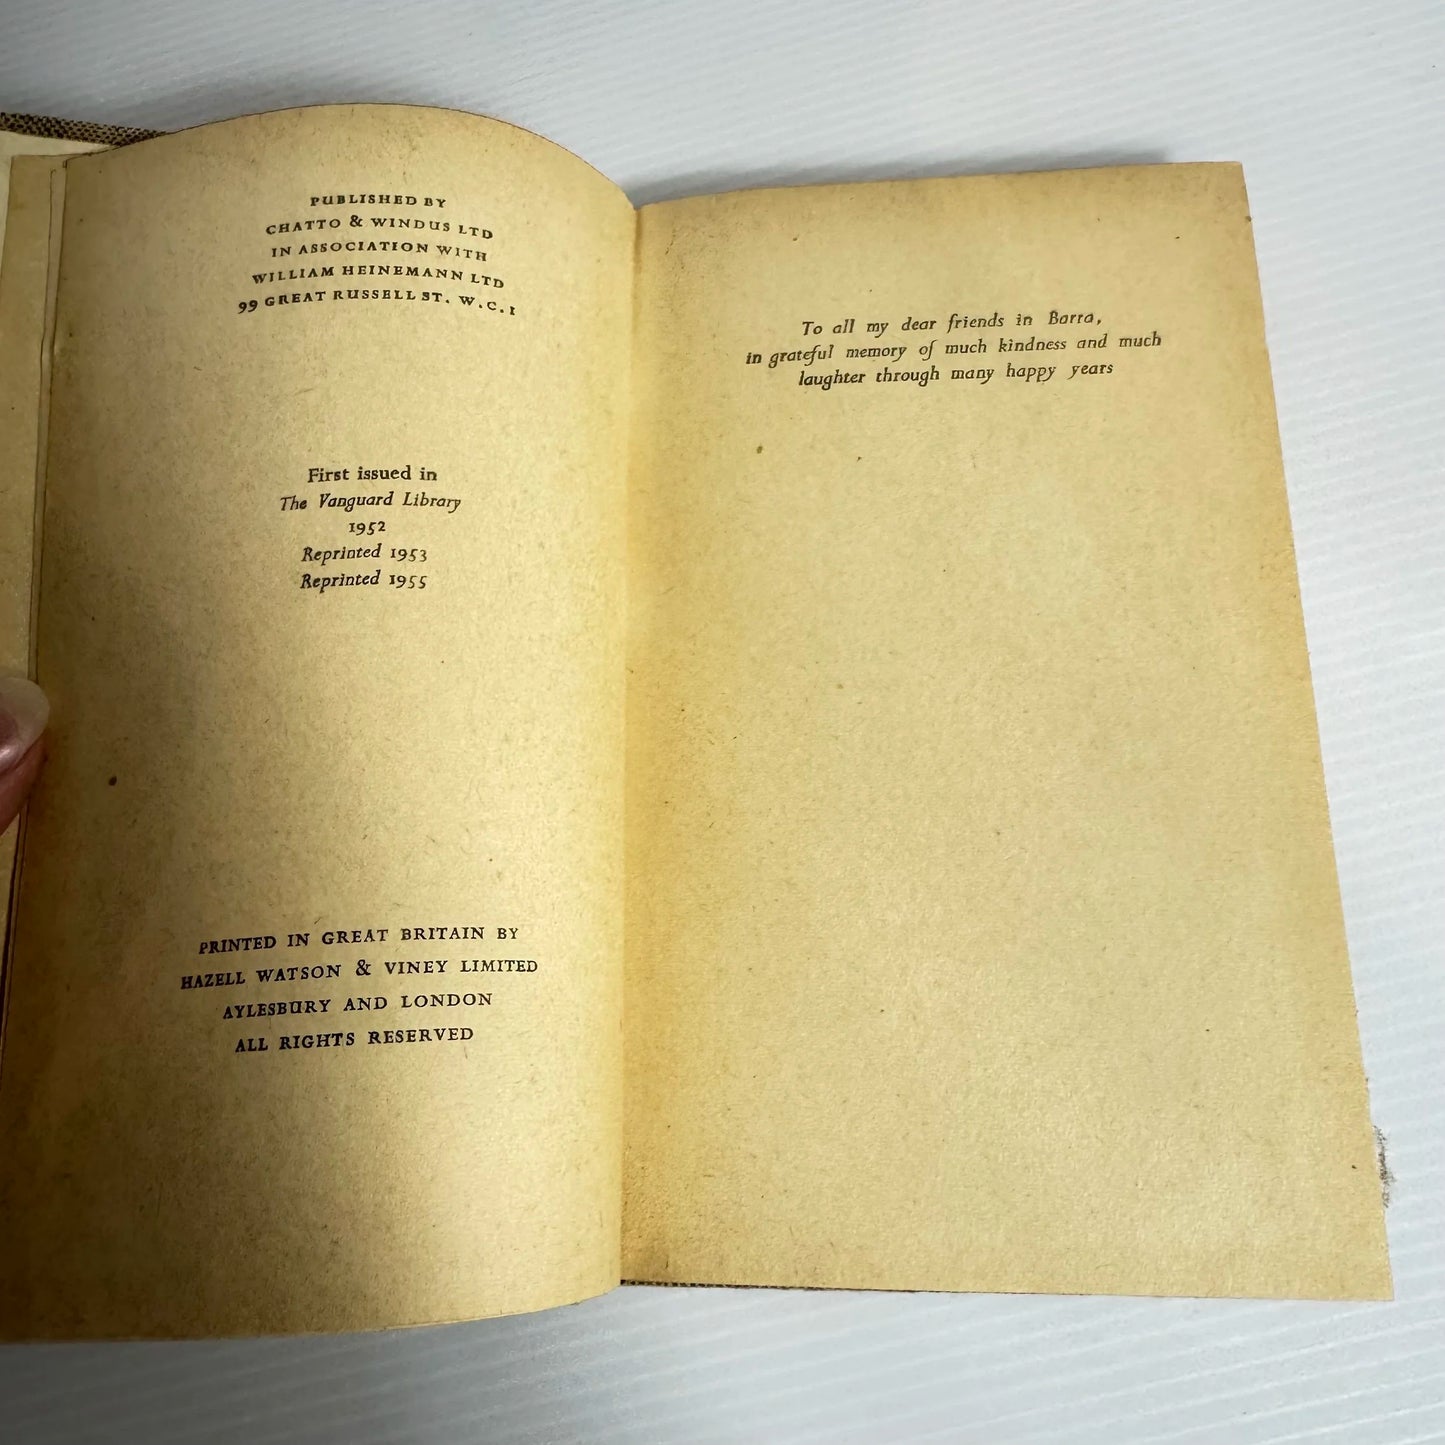 PUBLISHED BY
CHATTO & WINDUS LTD
IN ASSOCIATION WITH
WILLIAM HEINEMANN LTD
99 GREAT RUSSELL ST. W.C.1
First issued in
The Vanguard Library
1952
Reprinted 1953
Reprinted 1955
PRINTED IN GREAT BRITAIN BY
HAZELL WATSON & VINEY LIMITED
AYLESBURY AND LONDON
ALL RIGHTS RESERVED
To all my dear friends in Barra,
in grateful memory of much kindness and much
laughter through many happy years